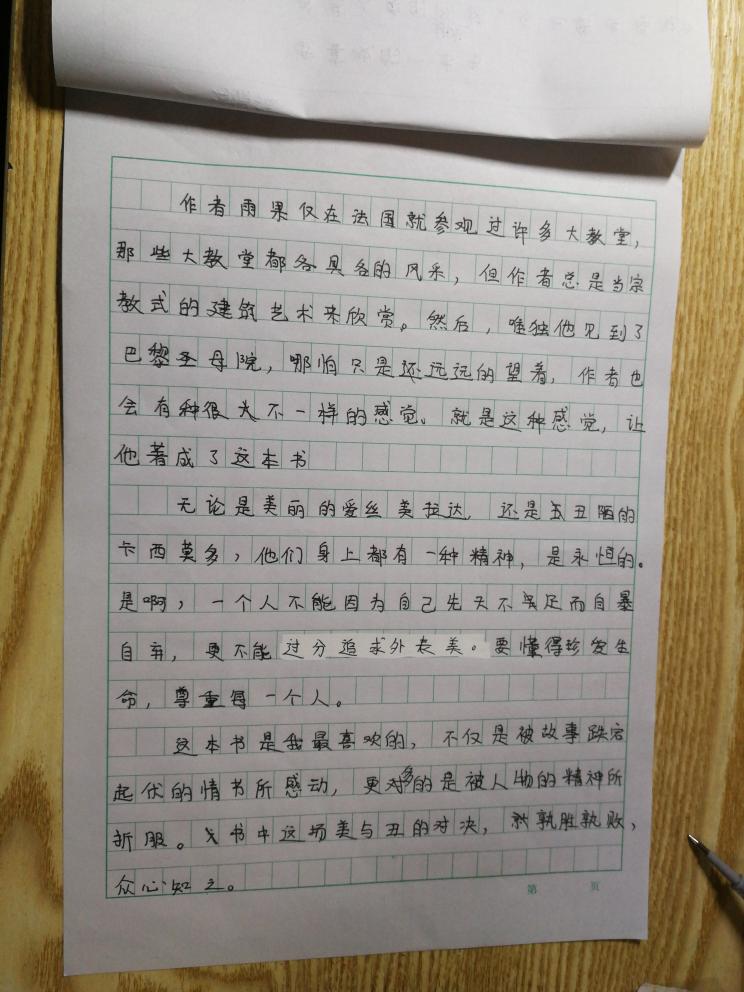 作者雨果仅在法国就参观过许多大教堂，
那些大教堂都各具各的风采，但作者总是当宗
教式的建筑艺术来欣赏。然后，唯独他见到了
巴黎圣母院，哪怕只是还远远的望着，作者也
会有种很大不一样的感觉。就是这种感觉，让
他著成了这本书
无论是美丽的爱丝美拉达，还是丑陋的
卡西莫多，他们身上都有一种精神，是永恒的。
是啊，一个人不能因为自己先天不足而自暴
自弃，更不能过分追求外表美。要懂得珍爱生
命，尊重每一个人。
这本书是我最喜欢的，不仅是被故事跌宕
起伏的情节所感动，更多的是被人物的精神所
折服。书中这场美与丑的对决，孰胜孰败，
众心知之。
第 页